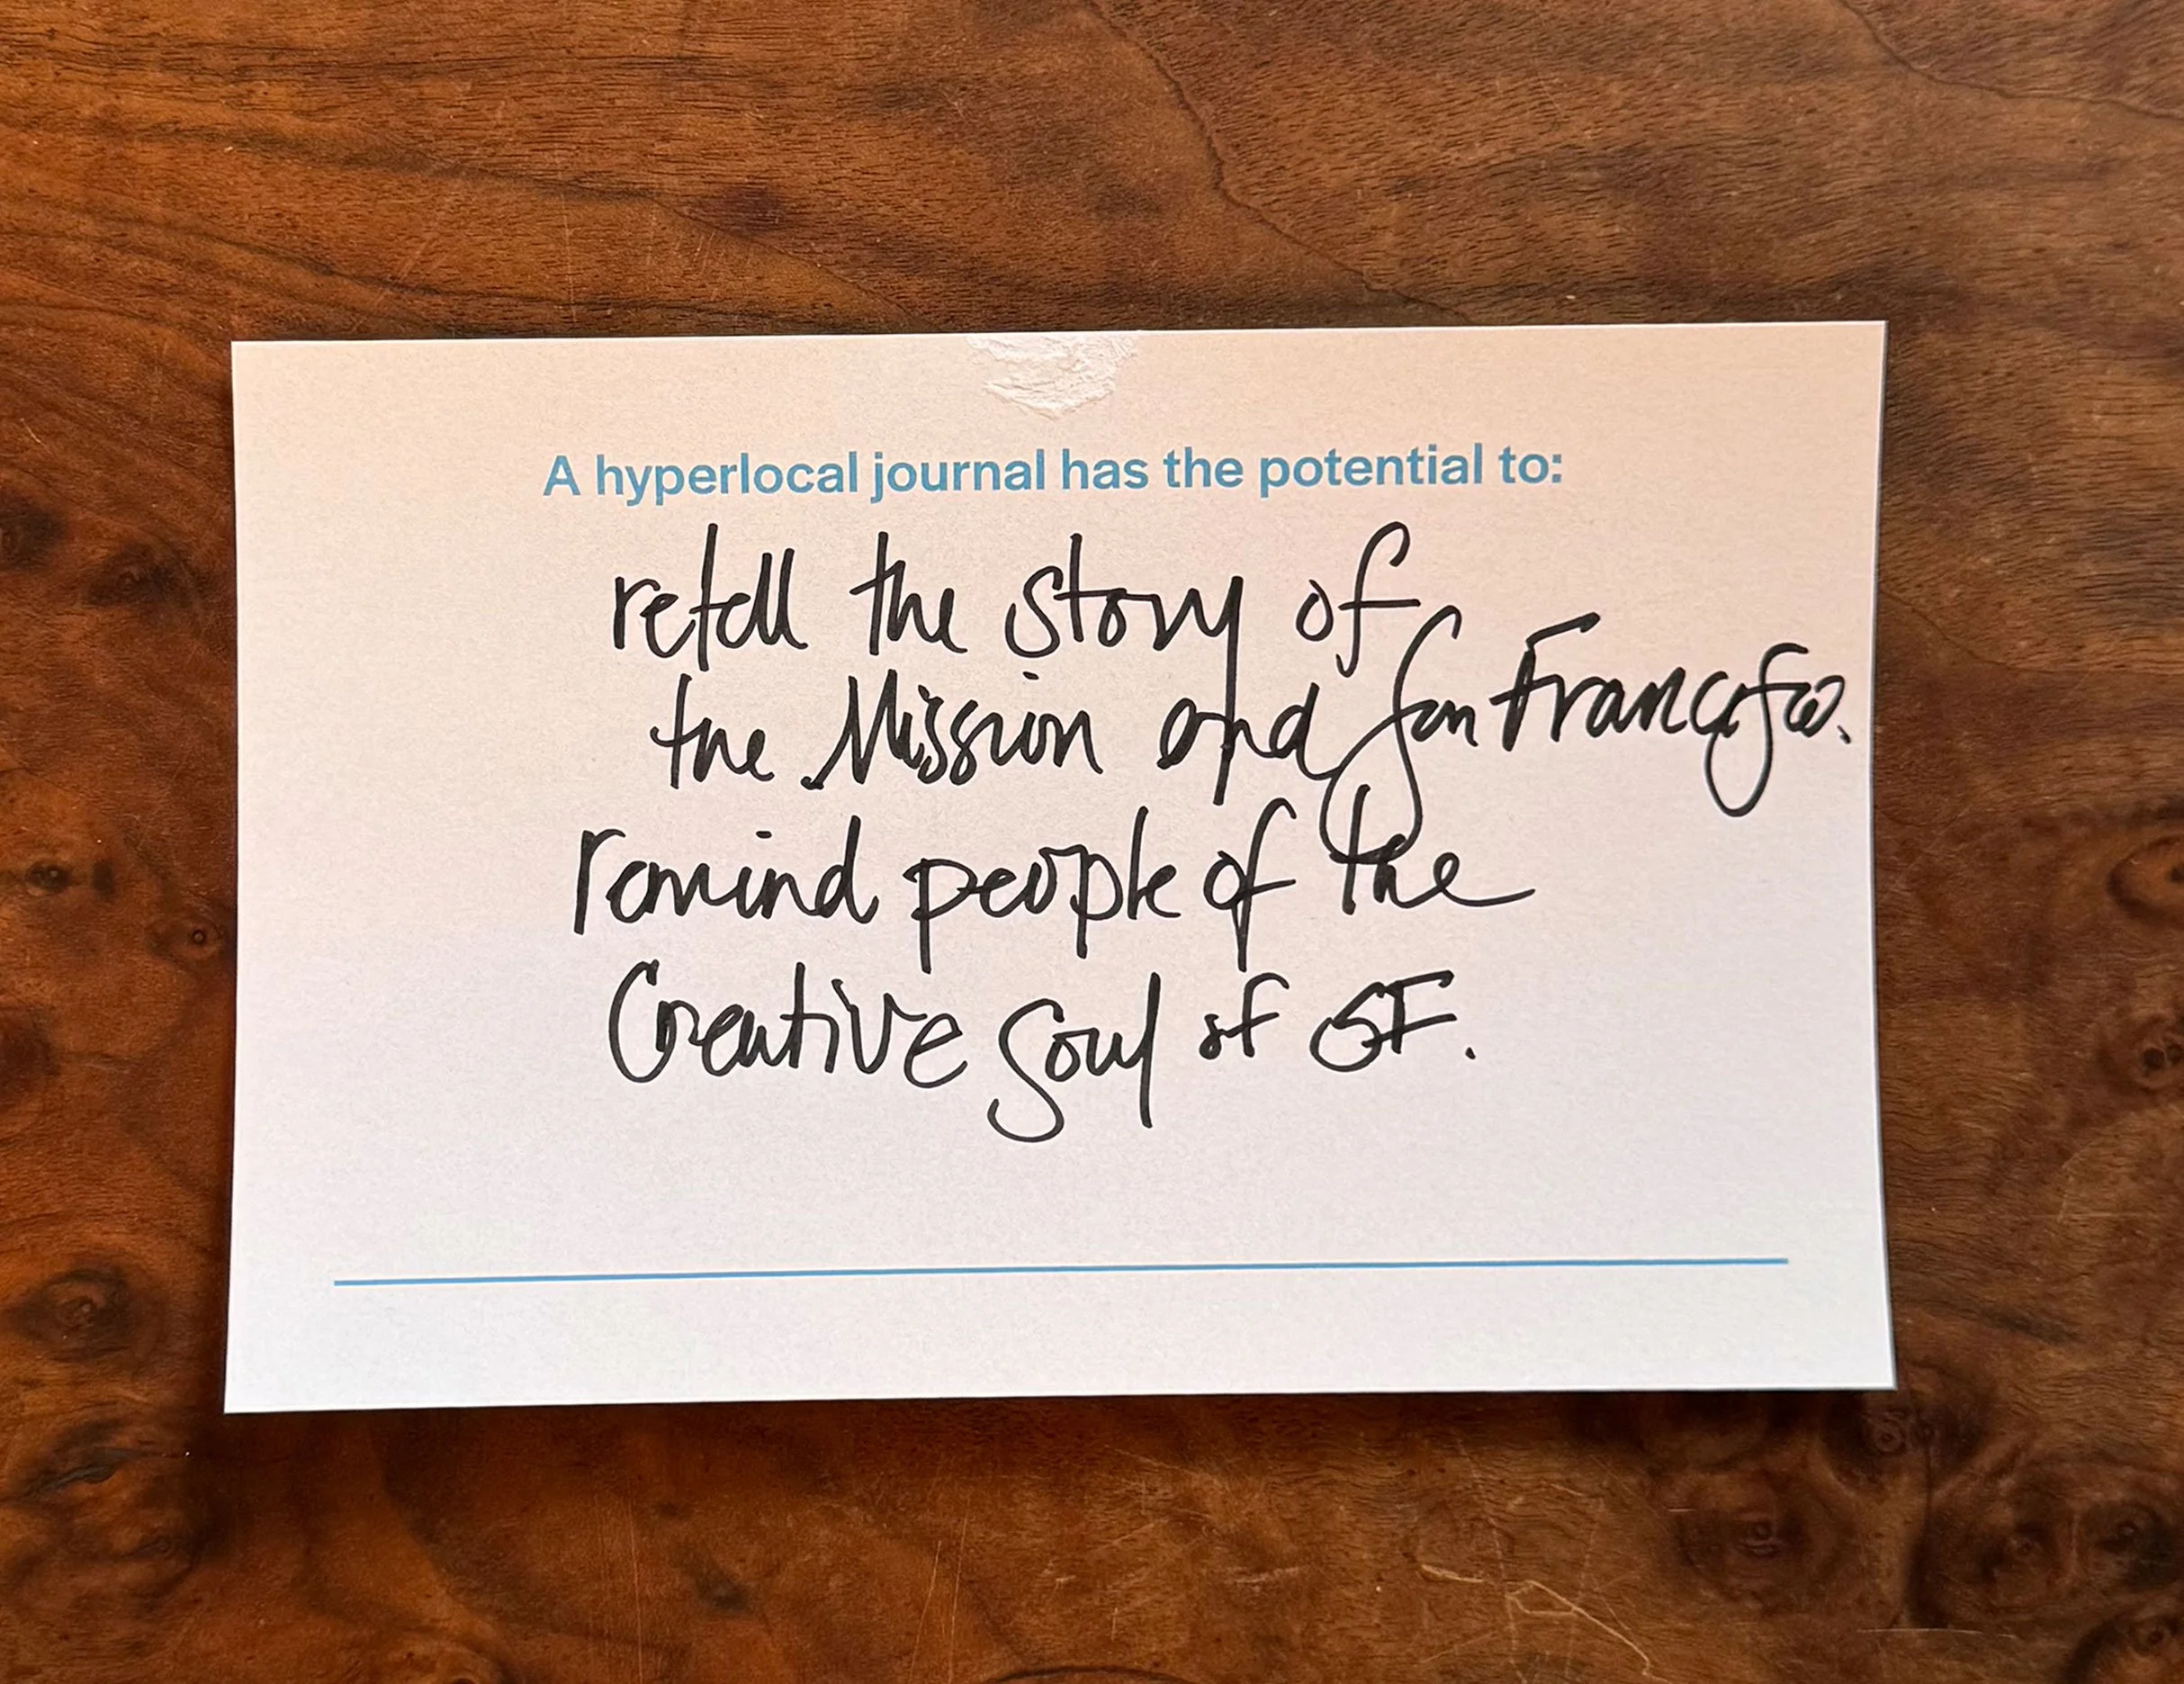 A hyperlocal journal has the potential to:
retell the story of
the Mission and San Francisco.
remind people of the
Creative Soul of SF.